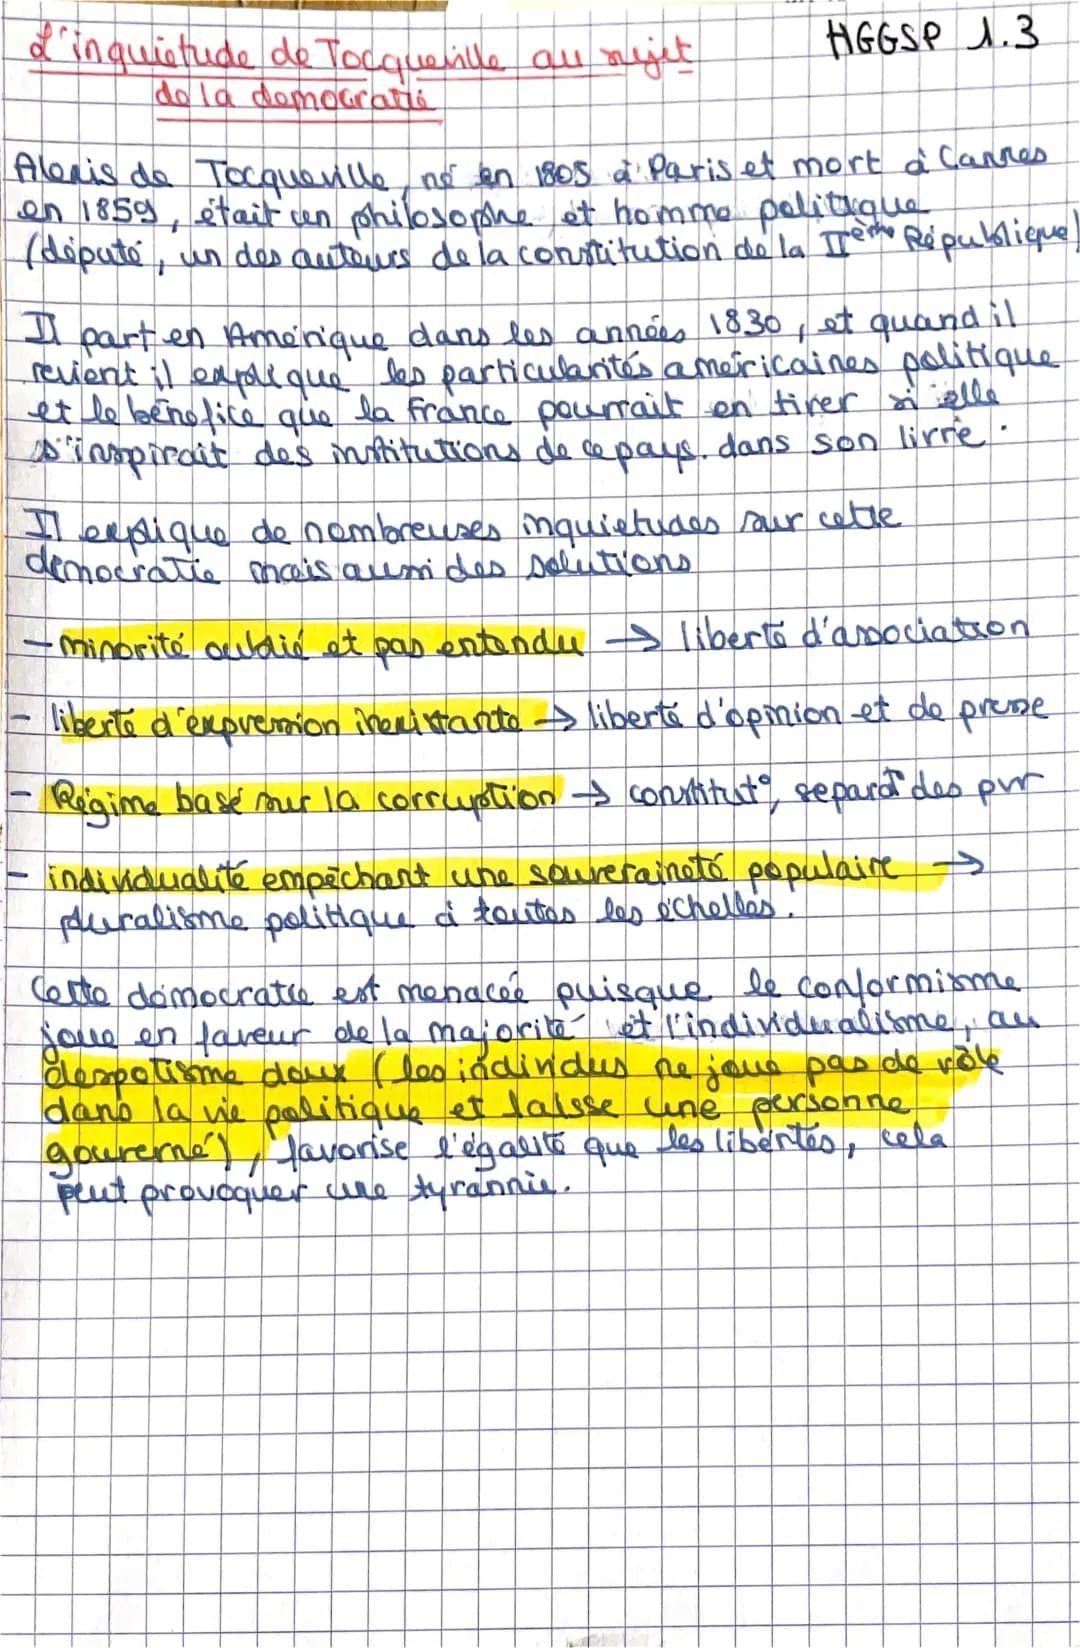 L'inquiétude de Tocqueville au sujet HGGSP 1.3
de la democratie
Alexis de Tocqueville, né en 1805 à Paris et mort à Cannes
en 1859, était un philosophe et homme politique
(député, un des auteurs de la constitution de la IIème République)
Il part en Amérique dans les années 1830, et quand il
revient il explique les particularités américaines politique
et le bénéfice que la france pourrait en tirer si elle
s'inspirait des institutions de ce pays. dans son livre.
Il explique de nombreuses inquietudes sur cette
democratie mais aussi des solutions
- minorité oublié et pas entendu → liberté d'association
- liberté d'expression inexistante → liberté d'opinion et de presse
- Régime basé sur la corruption → constitut°, separat° des pvr
- individualité empêchant une souveraineté populaire →
pluralisme politique à toutes les échelles.
Cette démocratie est menacée puisque le conformisme
joue en faveur de la majorité et l'individualisme, au
despotisme doux (les individus ne joue pas de rôle
dans la vie politique et laisse une personne
gouverné), favorise l'égalité que les libertés, cela
peut provoquer une tyrannie.